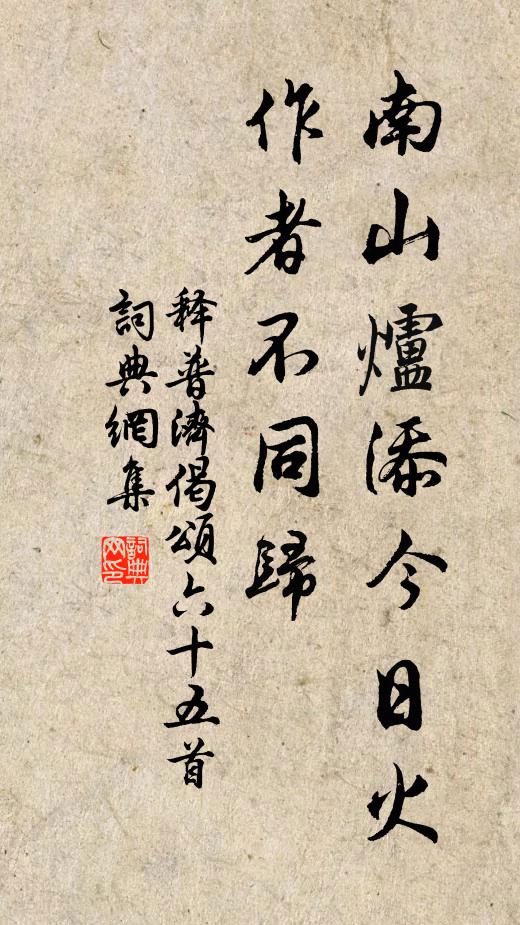 南山爐添今日火
作者不同歸
释普濟偈頌六十五首
詞典網集
詞典网印